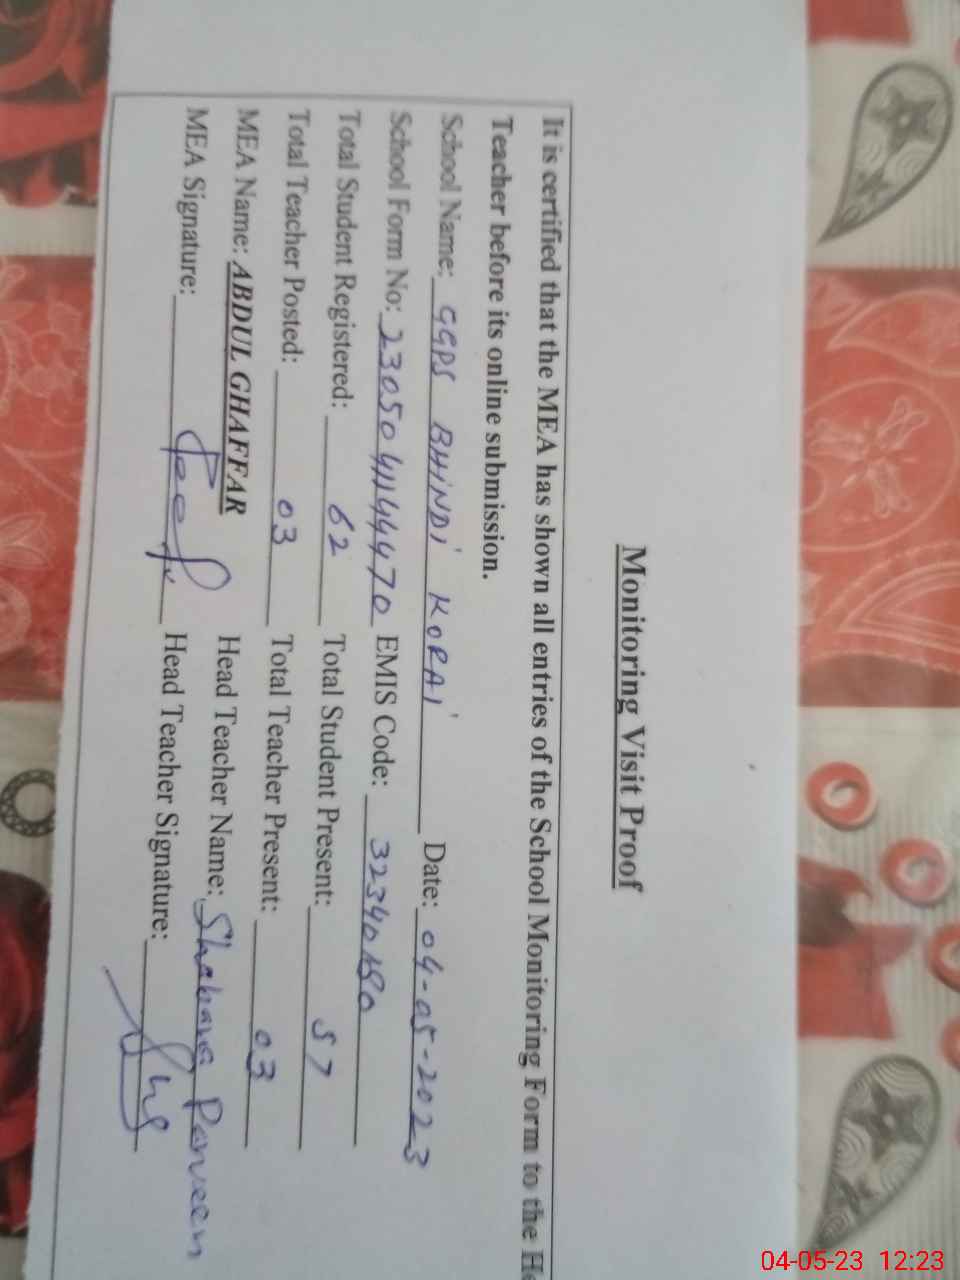 Monitoring Visit Proof
It is certified that the MEA has shown all entries of the School Monitoring Form to the He
Teacher before its online submission.
School Name: GGPS BHINDI KORAI Date: 04-05-2023
School Form No: 230504114470 EMIS Code:
Total Student Registered: 62 Total Student Present: 57
Total Teacher Posted: 03 Total Teacher Present: 03
MEA Name: ABDUL GHAFFAR Head Teacher Name: Shabana Parveen
MEA Signature: Head Teacher Signature:
04-05-23 12:23